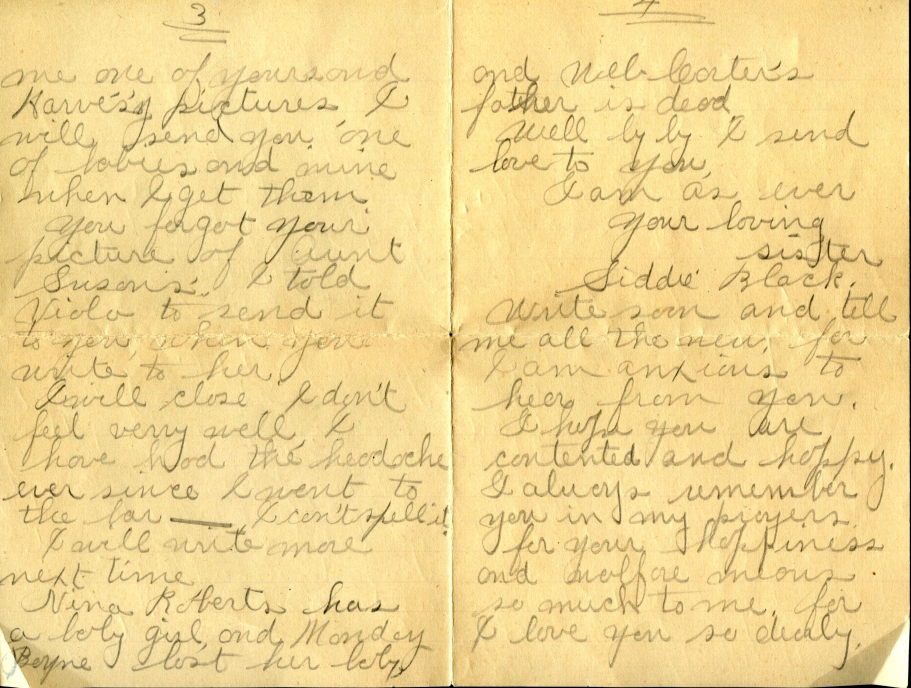 3
me one of yours and
Harvey's pictures I
will send you one
of babies and mine
when I get them
you forgot your
picture of Aunt
Susan's. I told
Viola to send it
to you, when you
write to her.
I will close I don't
feel verry well, I
have had the headache
ever since I went to
the far — I can't spell it
I will write more
next time
Nina Roberts has
a baby girl and Monday
lost her baby
4
and Carter's
father is dead
Well by by I send
love to you
I am as ever
your loving
sister
Siddie Black.
Write soon and tell
me all the new, for
I am anxious to
hear from you.
I hope you are
contented and happy.
I always remember
you in my prayers
for your happiness
and walfare means
so much to me, for
I love you so dearly,